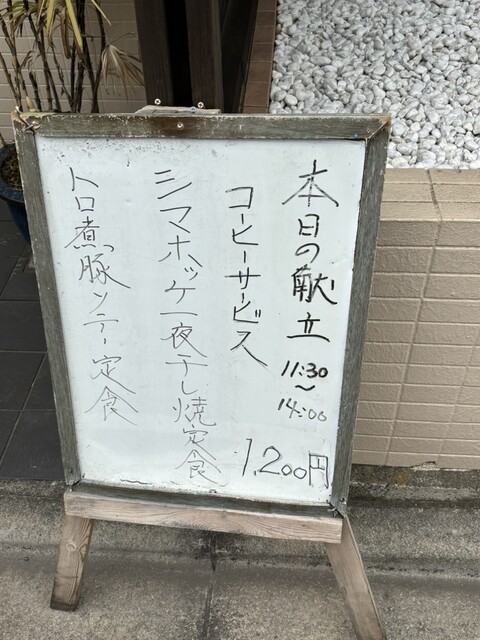 本日の献立
11:30
～
14:00
コーヒーサービス
1,200円
シマホッケ一夜干し焼定食
トロ煮豚ソテー定食